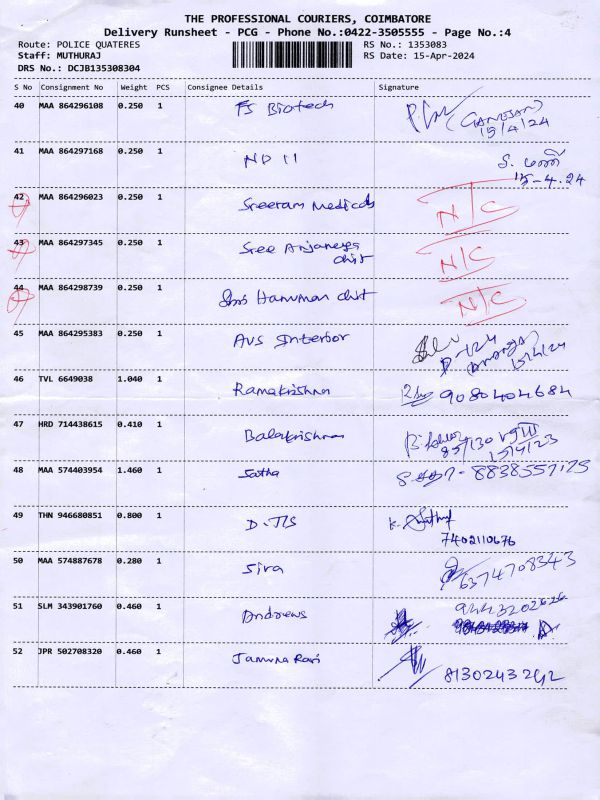 THE PROFESSIONAL COURIERS, COIMBATORE
Delivery Runsheet - PCG - Phone No.:0422-3505555 - Page No.:4
Route: POLICE QUATERES RS No.: 1353083
Staff: MUTHURAJ RS Date: 15-Apr-2024
DRS No.: DCJB135308304
S No Consignment No Weight PCS Consignee Details Signature
40 MAA 864296108 0.250 1 FS Biotech (GANESAN)
15/4/24
41 MAA 864297168 0.250 1 ND 11
15-4.24
42 MAA 864296023 0.250 1 Sreeram Medicals N/C
43 MAA 864297345 0.250 1 Sree Anjaneya N/C
chit
44 MAA 864298739 0.250 1 Shri Hanuman chit N/C
45 MAA 864295383 0.250 1 AVS Interior D-124
15/4/24
46 TVL 6649038 1.040 1 Ramakrishna 9080404684
47 HRD 714438615 0.410 1 Balakrishnan
15/4/23
48 MAA 574403954 1.460 1 Satha 8838557125
49 THN 946680851 0.800 1 D.TIS
7402110676
50 MAA 574887678 0.280 1 Siva 6374708343
51 SLM 343901760 0.460 1 Andrews 9443202626
52 JPR 502708320 0.460 1 Jamuna Rani
8130243242